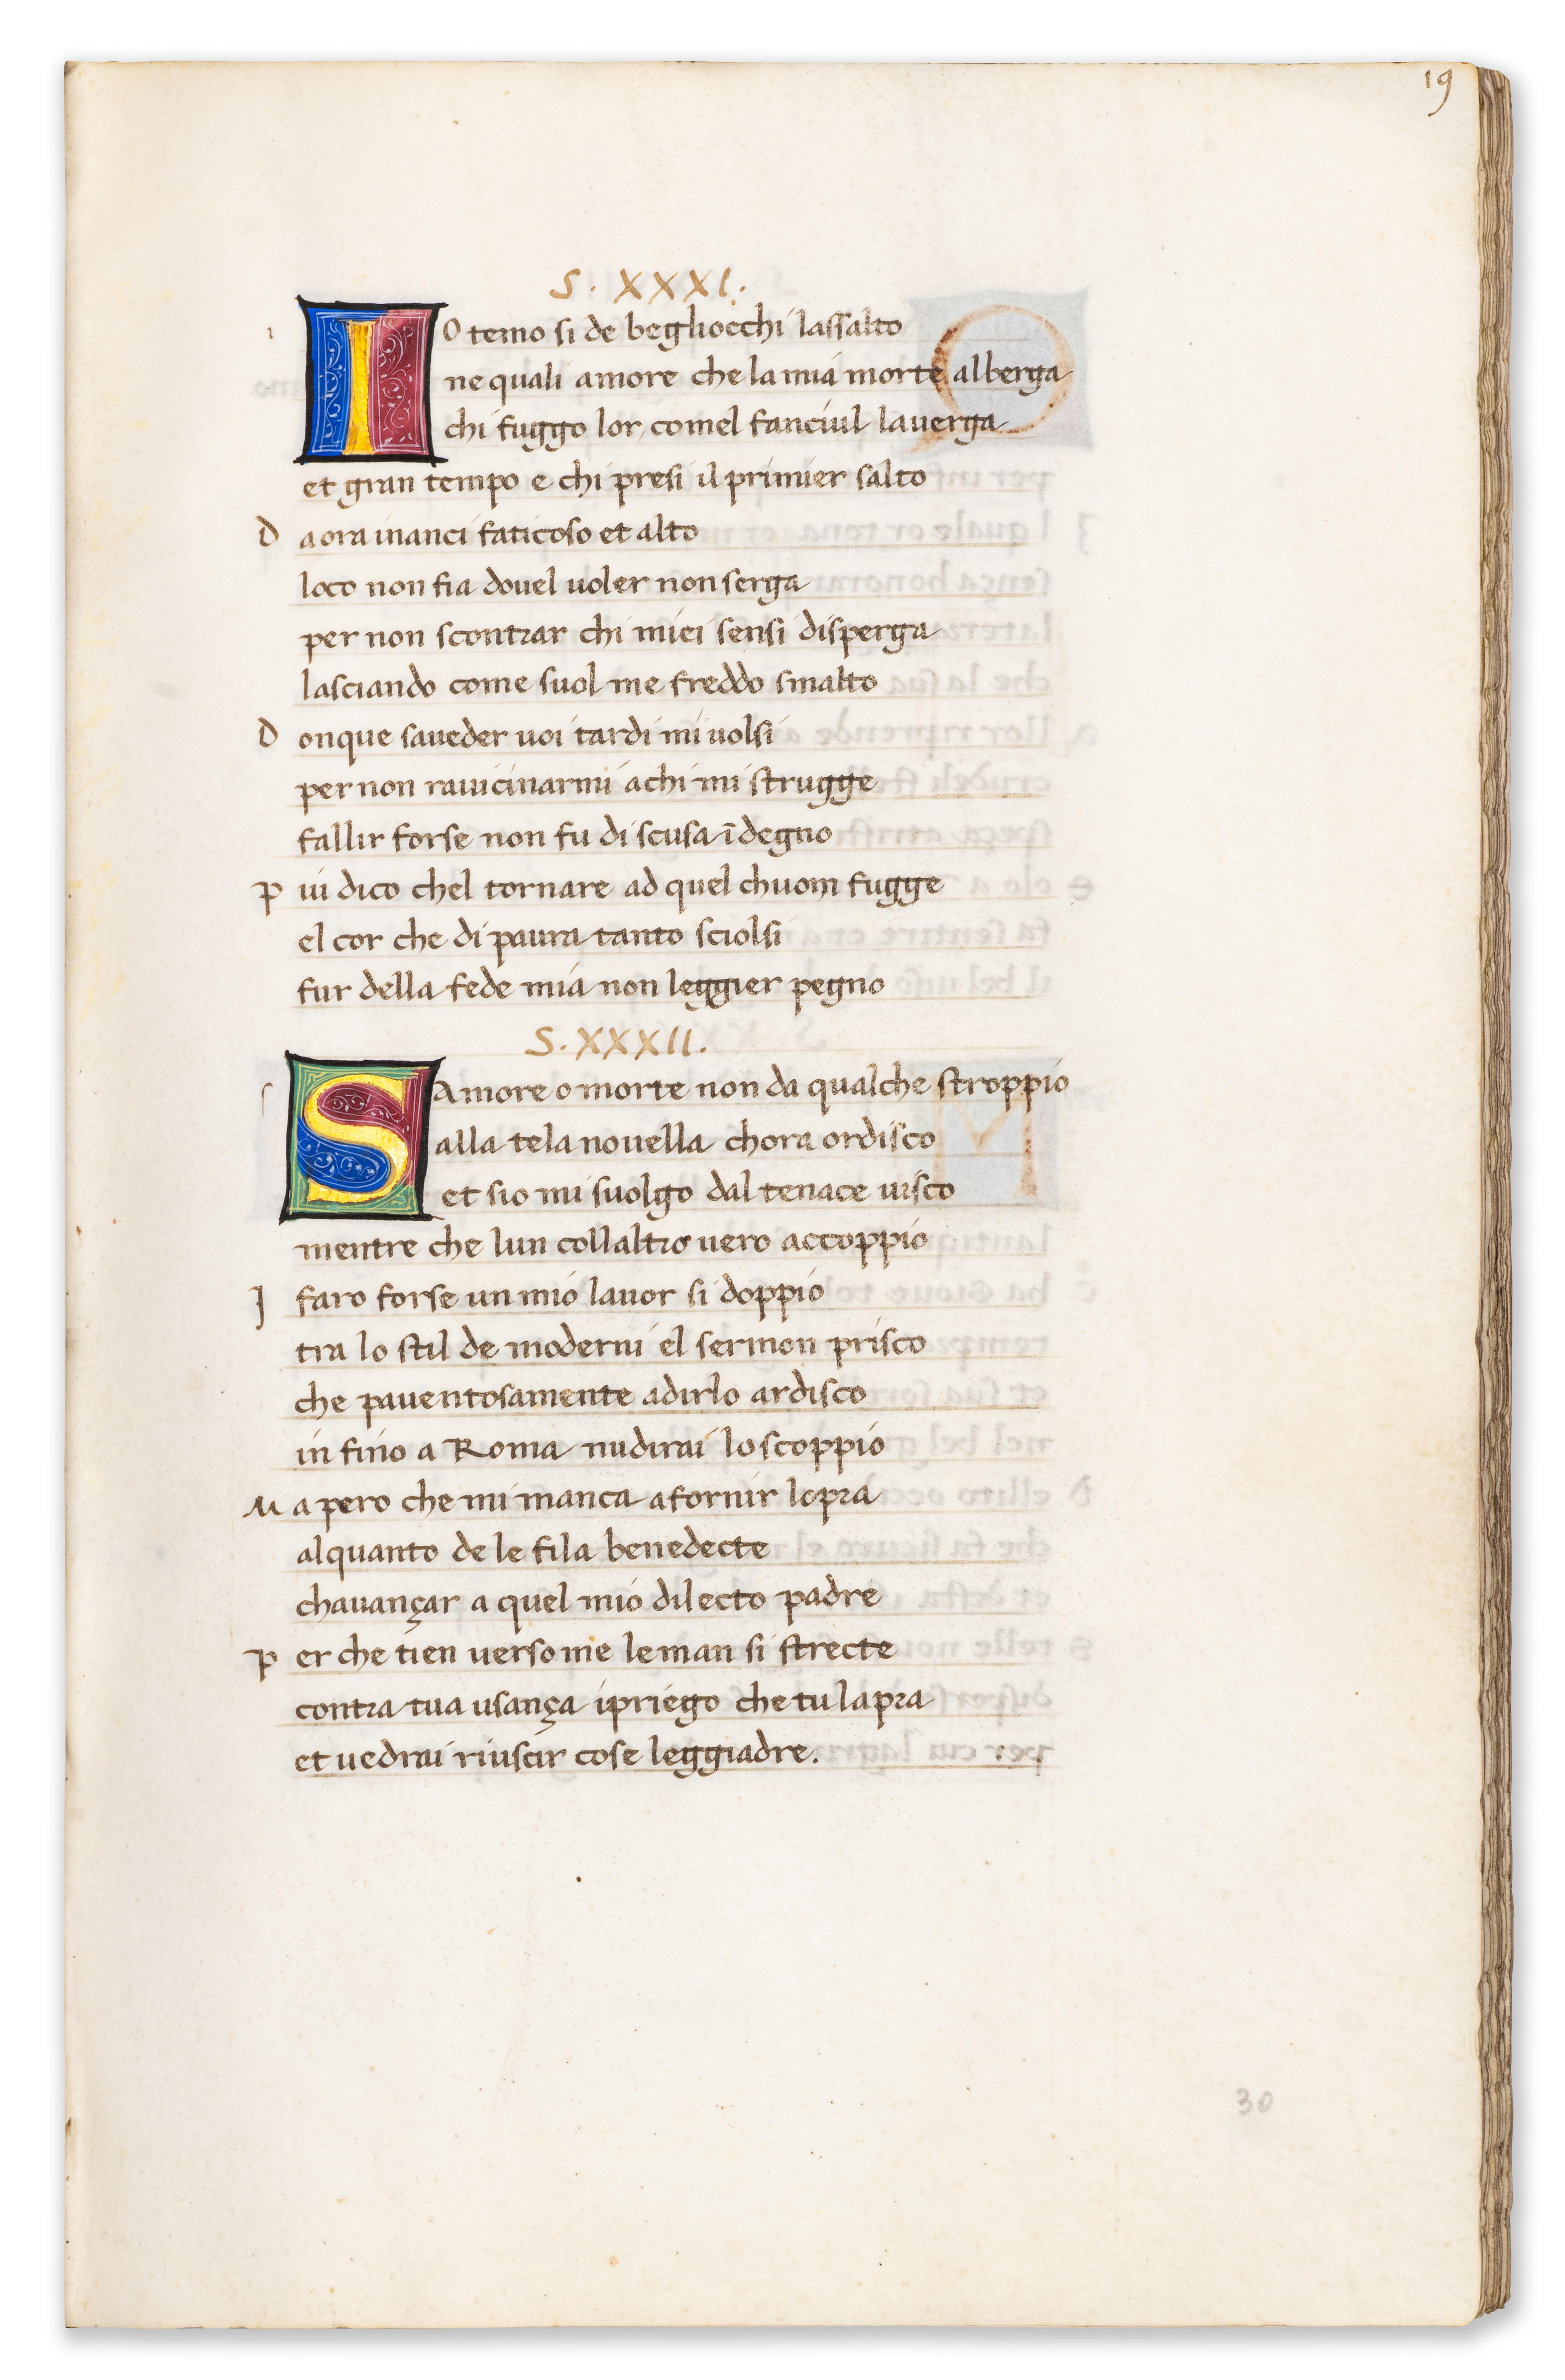 19
S. XXXI.
IO temo si de begliocchi lassalto
ne quali amore che la mia morte alberga
chi fuggo lor comel fanciul lauerga
et gran tempo e chi presi il primier salto
D aora inanci faticoso et alto
loco non fia douel uoler non serga
per non scontrar chi miei sensi disperga
lasciando come suol me freddo smalto
D onque saueder uoi tardi mi uolsi
per non rauicinarmi achi mi strugge
fallir forse non fu di scusa īdegno
P iu dico chel tornare ad quel chuom fugge
el cor che di paura tanto sciolsi
fur della fede mia non leggier pegno
S. XXXII.
SAmore o morte non da qualche stroppio
alla tela nouella chora ordisco
et sio mi suolgo dal tenace uisco
mentre che lun collaltro uero accoppio
I faro forse un mio lauor si doppio
tra lo stil de moderni el sermon prisco
che pauentosamente adirlo ardisco
in fino a Roma nudirai lo scoppio
M a pero che mi manca afornir lopra
alquanto de le fila benedecte
chauançar a quel mio dilecto padre
P er che tien uerso me le man si strecte
contra tua usança ipriego che tu lapra
et uedrai riuscir cose leggiadre.
30